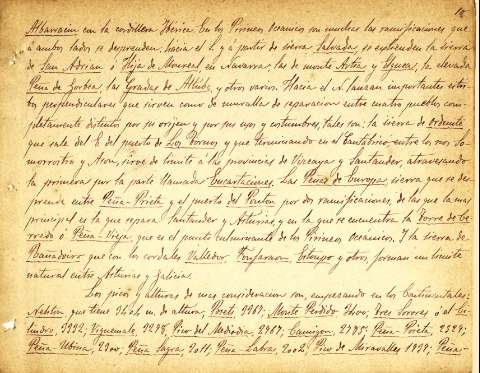 Albarracin con la cordillera Ibérica. En los Pirineos Oceánicos son muchas las ramificaciones que
á ambos lados se desprenden: hacia el S. y á partir de sierra Salvada, se estienden la sierra
de San Adrian ó Hija de Monreal en Navarra las de monte Avtia y la elevada
Peña de Gorbea, las Gradas de Altube, y otros varios. Hacia el N. lanzan importantes estri-
bos perpendiculares que sirven como de muralla de separacion entre cuatro pueblos com-
pletamente distintos por su orígen y por sus usos y costumbres, tales son: la sierra de Ordunte
que sale del E. del puerto de Los Tornos y que terminando en el Cantábrico, entre los rios So-
morrostro y Ason, sirve de límite á las provincias de Vizcaya y Santander, atravesando
la primera por la parte llamada Encartaciones. Las Peñas de Europa, sierra que se des-
prende entre Peña-Prieta y el puerto del Ponton por dos ramificaciones, de las que la mas
principal es la que separa Santander y Asturias y en la que se encuentra la Torre de Ce-
rredo ó Peña-Vieja, que es el punto culminante de los Pirineos Oceánicos. Y la sierra de
Rañadoiro que con los cordales Valledor, y otros, forman un límite
natural entre Asturias y Galicia.
Los picos y alturas de mas consideracion son, empezando en los Continentales:
Nethou que tiene 3404 m. de altura; Posets 3367; Monte Perdido; Tres Sorores ó el Ci-
lindro, 3322; Viguemale, 3298; Pico del Mediodia 2967; Canigou, 2785; Peña-Prieta, 2529;
Peña-Ubina, 2300; Peña Sagra, 2011; Peña-Labra, 2002; Pico de Miravalles 1939; Peña-